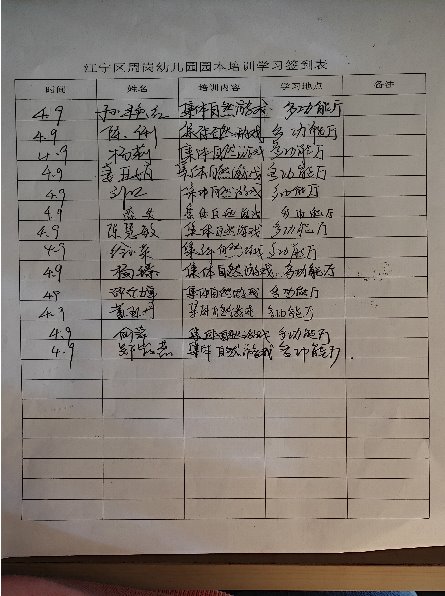 江宁区周岗幼儿园园本培训学习签到表
时间 姓名 培训内容 学习地点 备注
4.9 集体自然游戏 多功能厅
4.9 陈俐 集体自然游戏 多功能厅
4.9 杨莉 集体自然游戏 多功能厅
4.9 集体自然游戏 多功能厅
4.9 集体自然游戏 多功能厅
4.9 集体自然游戏 多功能厅
4.9 陈慧敏 集体自然游戏 多功能厅
4.9 集体自然游戏 多功能厅
4.9 杨璐 集体自然游戏 多功能厅
4.9 集体自然游戏 多功能厅
4.9 集体自然游戏 多功能厅
4.9 集体自然游戏 多功能厅
4.9 集体自然游戏 多功能厅